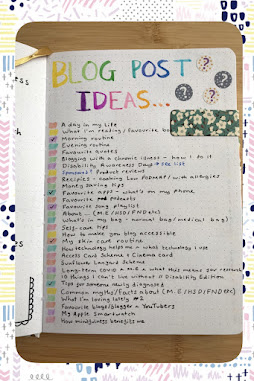 BLOG POST
IDEAS...
A day in my life
What I'm reading/favourite
Morning routine
Evening routine
Favourite quotes
Blogging with a chronic illness - how I do it
Disability Awareness Days → see list
Sponsored? Product reviews
Recipes - cooking low FODMAP / with allergies
Money saving tips
Favourite apps - what's on my phone
Favourite podcasts
Favourite song playlist
About ... (M.E/HSD/FND etc)
What's in my bag - normal bag/medical bag)
Self-care tips
How to make you blog accessible
My skin care routine
How technology helps me & what technology I use
Access Card Scheme & Cinema card
Sunflower Lanyard Scheme
Long-term COVID & M.E & what this means
10 Things I Can't live without :: Disability Edition
Tips for someone newly diagnosed
Common myths/Facts about (M.E/HSD/FND etc)
What I'm loving lately #2
Favourite blogs/blogger & YouTubers
My Apple Smartwatch
How mindfulness benefits me